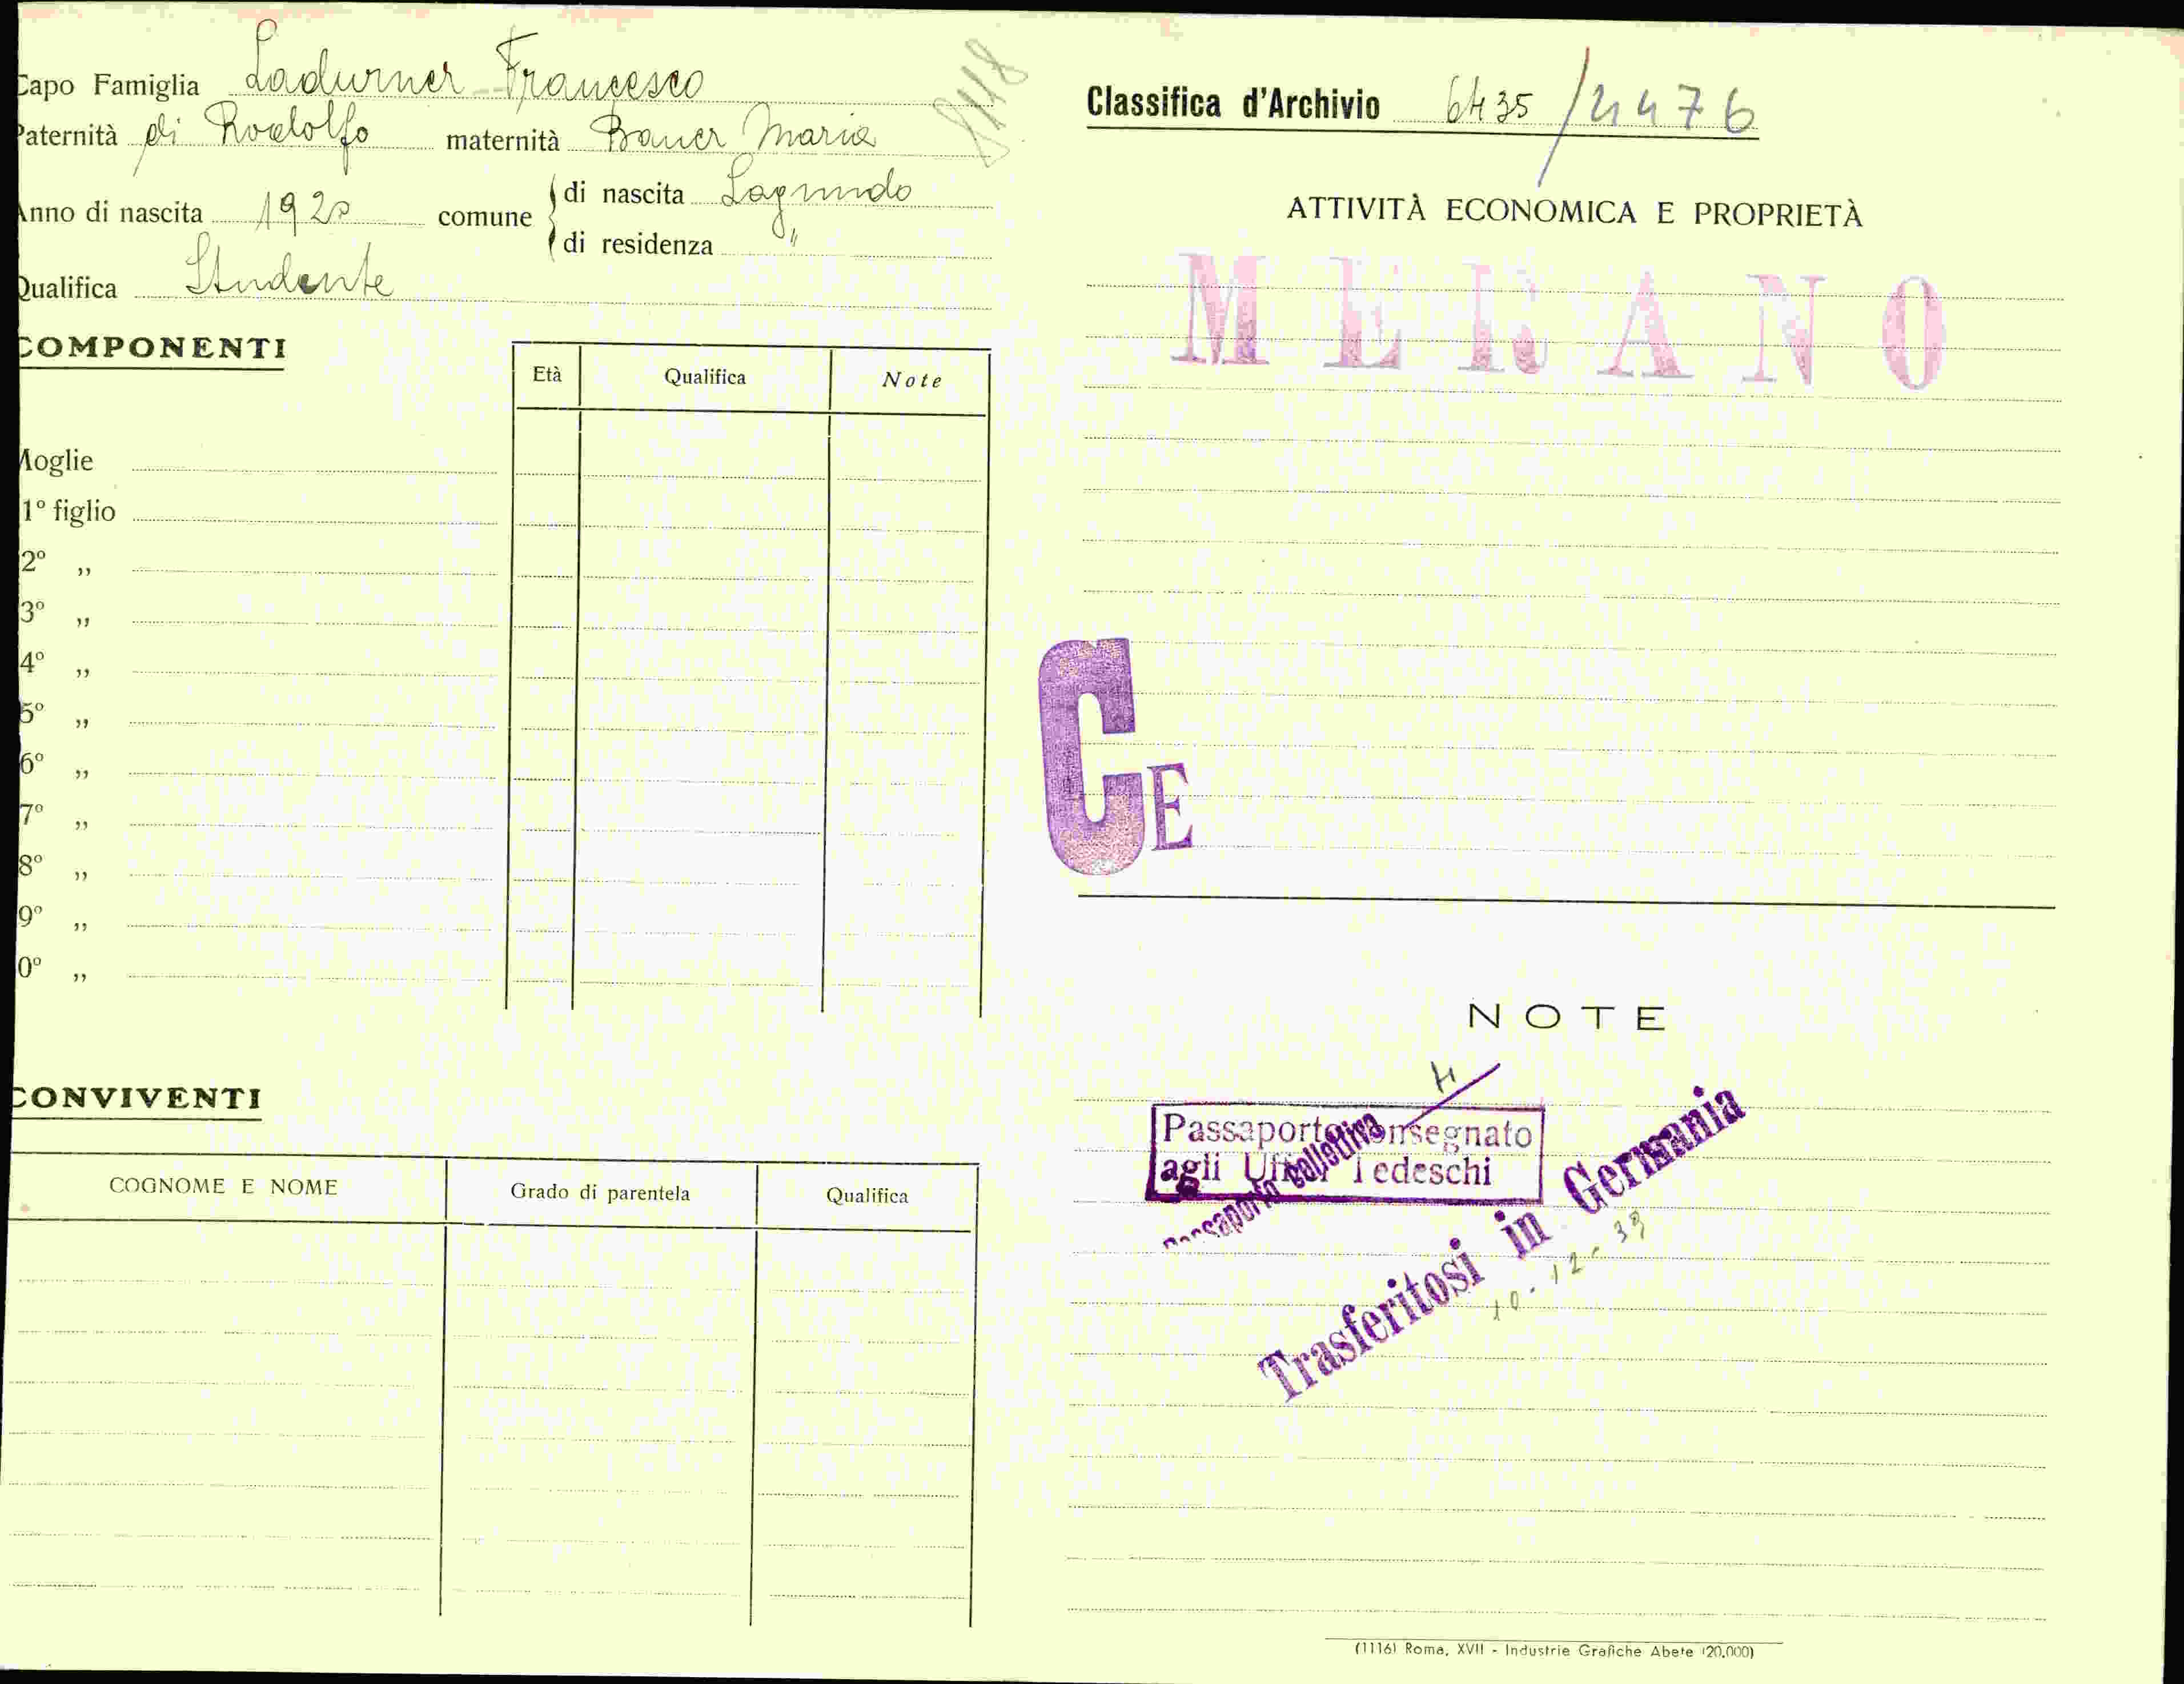 Capo Famiglia Ladurner Francesco
Paternità di Rodolfo maternità Bauer Maria
Anno di nascita 1920 comune di nascita Lagundo
di residenza "
Qualifica Studente
8448
COMPONENTI
Età Qualifica Note
Moglie
1º figlio
2º „
3º „
4º „
5º „
6º „
7º „
8º „
9º „
0º „
CONVIVENTI
COGNOME E NOME Grado di parentela Qualifica
Classifica d'Archivio 6435/4476
ATTIVITÀ ECONOMICA E PROPRIETÀ
MERANO
CE
NOTE
Passaporto consegnato
agli Uffici Tedeschi
Passaporto collettiva
Trasferitosi in Germania
10-12-39
(1116) Roma, XVII - Industrie Grafiche Abete (20.000)